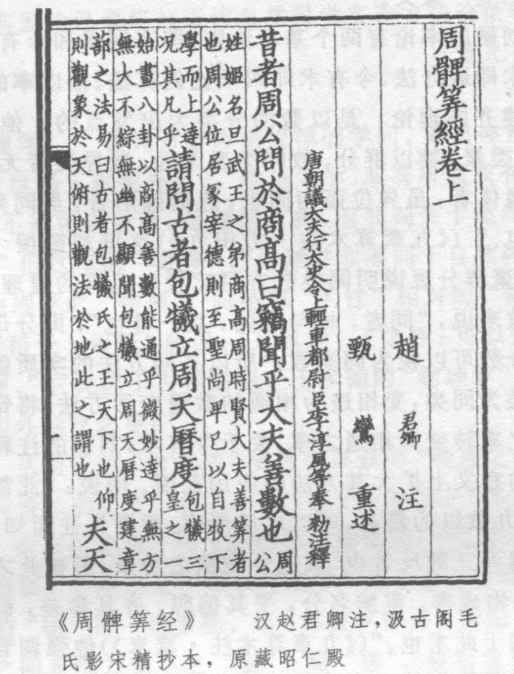 周髀筭經卷上
趙君卿注
甄鸞重述
唐朝議大夫行太史令上輕車都尉臣李淳風等奉勑注釋
昔者周公問於商高曰竊聞乎大夫善數也周公
姓姬名旦武王之弟商高周時賢大夫善筭者
也周公位居冢宰德則至聖尚卑己以自牧下
學而上達
況其凡乎請問古者包犧立周天曆度包犧三皇之一
始畫八卦以商高善數能通乎微妙達乎無方
無大不綜無幽不顯聞包犧立周天曆度建章
蔀之法易曰古者包犧氏之王天下也仰
則觀象於天俯則觀法於地此之謂也夫天
《周髀筭经》　汉赵君卿注，汲古阁毛
氏影宋精抄本，原藏昭仁殿